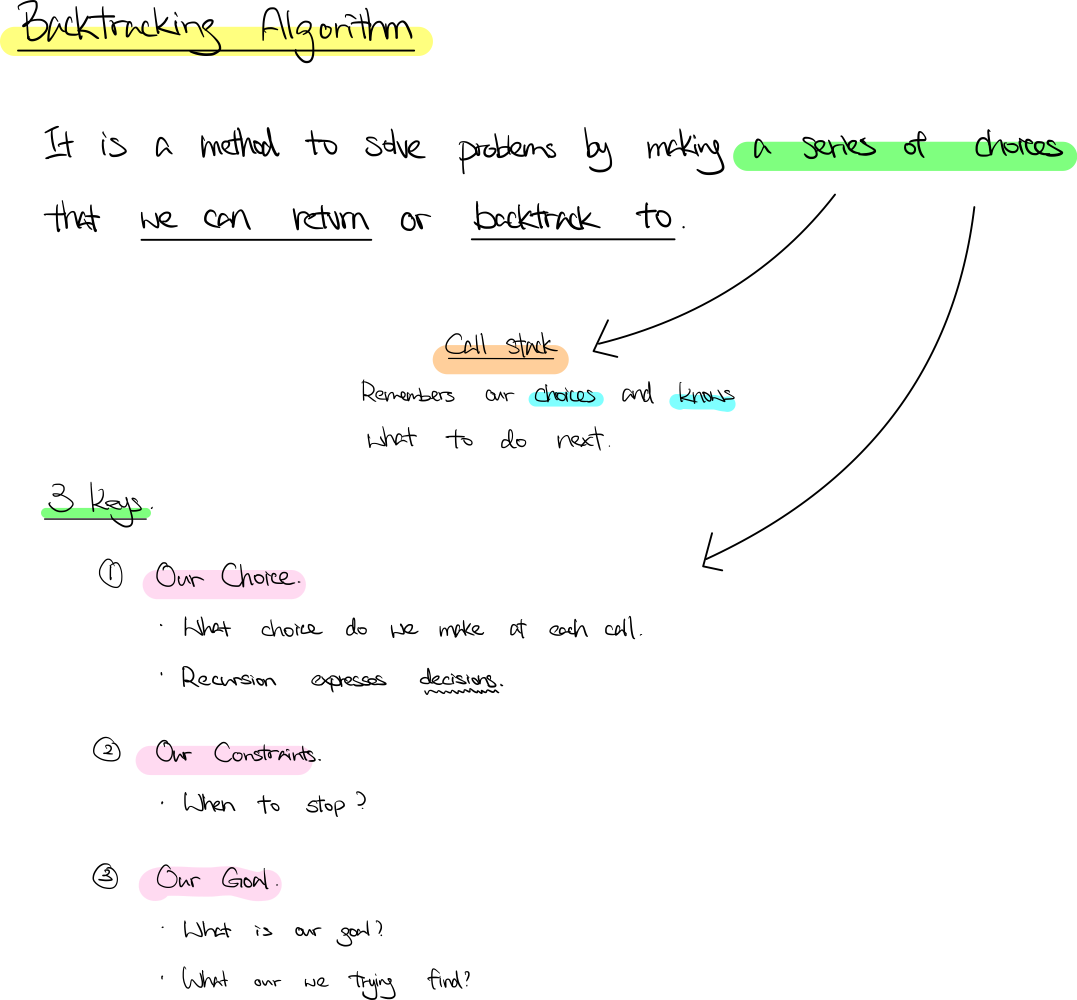 Backtracking Algorithm
It is a method to solve problems by making a series of choices
that we can return or backtrack to.
Call stack
Remembers our choices and knows
what to do next.
3 keys.
① Our Choice.
· What choice do we make at each call.
· Recursion expresses decisions.
② Our Constraints.
· When to stop?
③ Our Goal.
· What is our goal?
· What our we trying find?